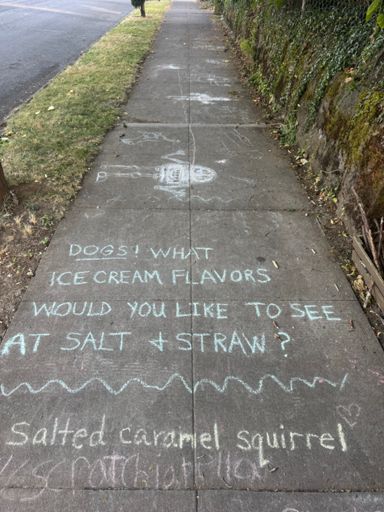 DOGS! WHAT
ICE CREAM FLAVORS
WOULD YOU LIKE TO SEE
AT SALT & STRAW?
Salted caramel squirrel